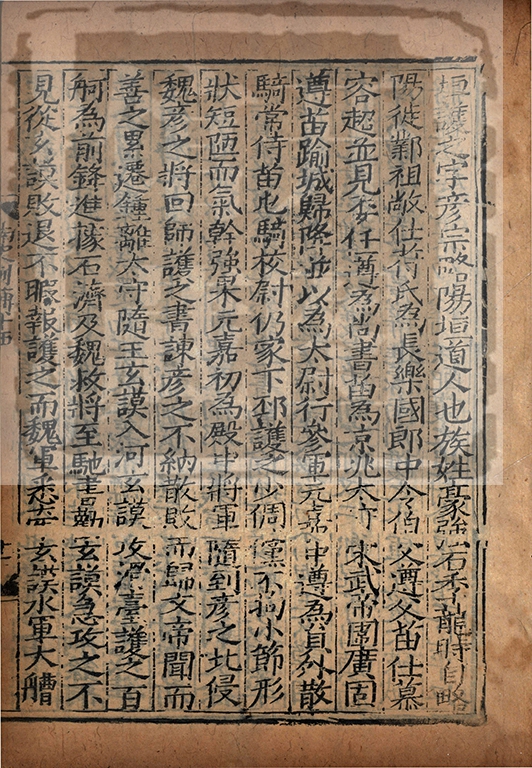 垣護之字彦宗略陽垣道人也族姓豪強石季龍時自略
陽徙鄴祖敞仕苻氏為長樂國郎中令伯父遵父苗仕慕
容超並見委任遵為尚書苗為京兆太守宋武帝圍廣固
遵苗踰城歸降並以為太尉行參軍元嘉中遵為負外散
騎常侍苗屯騎校尉仍家下邳護之少倜儻不拘小節形
狀短陋而氣幹強果元嘉初為殿中將軍隨到彦之北侵
魏彦之將回師護之書諫彦之不納散敗而歸文帝聞而
善之累遷鍾離太守隨王玄謨入河玄謨攻滑臺護之百
舸為前鋒進據石濟及魏救將至馳書勸玄謨急攻之不
見從玄謨敗退不暇報護之而魏軍悉牽玄謨水軍大艚